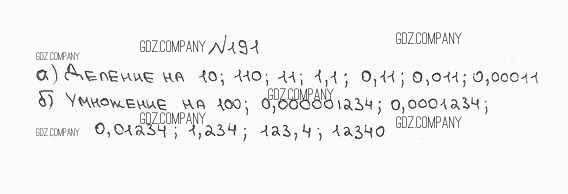 GDZ.COMPANY №191 GDZ.COMPANY
GDZ.COMPANY
а) Деление на 10; 110; 11; 1,1; 0,11; 0,011; 0,00011
GDZ.COMPANY
б) Умножение на 100; 0,000001234; 0,0001234;
GDZ.COMPANY GDZ.COMPANY
GDZ.COMPANY 0,01234; 1,234; 123,4; 12340